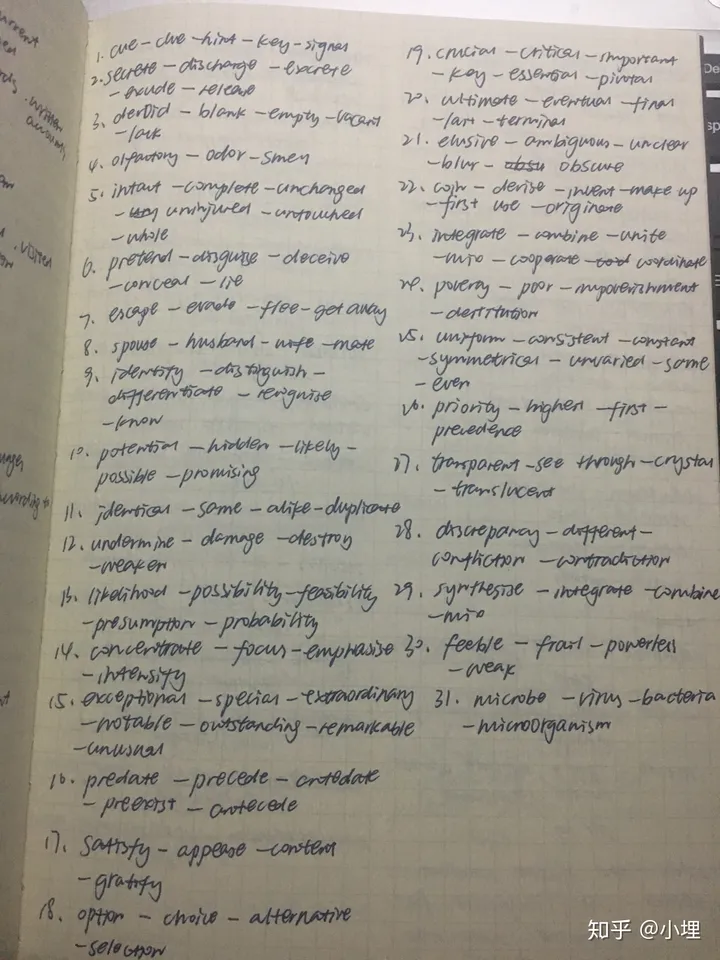 1. cue - clue - hint - key - signal
2. secrete - discharge - excrete
- exude - release
3. devoid - blank - empty - vacant
- lack
4. olfactory - odor - smell
5. intact - complete - unchanged
- uninjured - untouched
- whole
6. pretend - disguise - deceive
- conceal - lie
7. escape - evade - flee - get away
8. spouse - husband - wife - mate
9. identify - distinguish -
differentiate - recognise
- know
10. potential - hidden - likely -
possible - promising
11. identical - same - alike - duplicate
12. undermine - damage - destroy
- weaken
13. likelihood - possibility - feasibility
- presumption - probability
14. concentrate - focus - emphasise
- intensify
15. exceptional - special - extraordinary
- notable - outstanding - remarkable
- unusual
16. predate - precede - antedate
- preexist - antecede
17. satisfy - appease - content
- gratify
18. option - choice - alternative
- selection
19. crucial - critical - important
- key - essential - pivotal
20. ultimate - eventual - final
- last - terminal
21. elusive - ambiguous - unclear
- blur - obscure
22. coin - devise - invent - make up
- first use - originate
23. integrate - combine - unite
- mix - cooperate - coordinate
24. poverty - poor - impoverishment
- destitution
25. uniform - consistent - constant
- symmetrical - unvaried - same
- even
26. priority - highest - first -
precedence
27. transparent - see through - crystal
- translucent
28. discrepancy - different -
confliction - contradiction
29. synthesise - integrate - combine
- mix
30. feeble - frail - powerless
- weak
31. microbe - virus - bacteria
- microorganism
知乎 @小埋